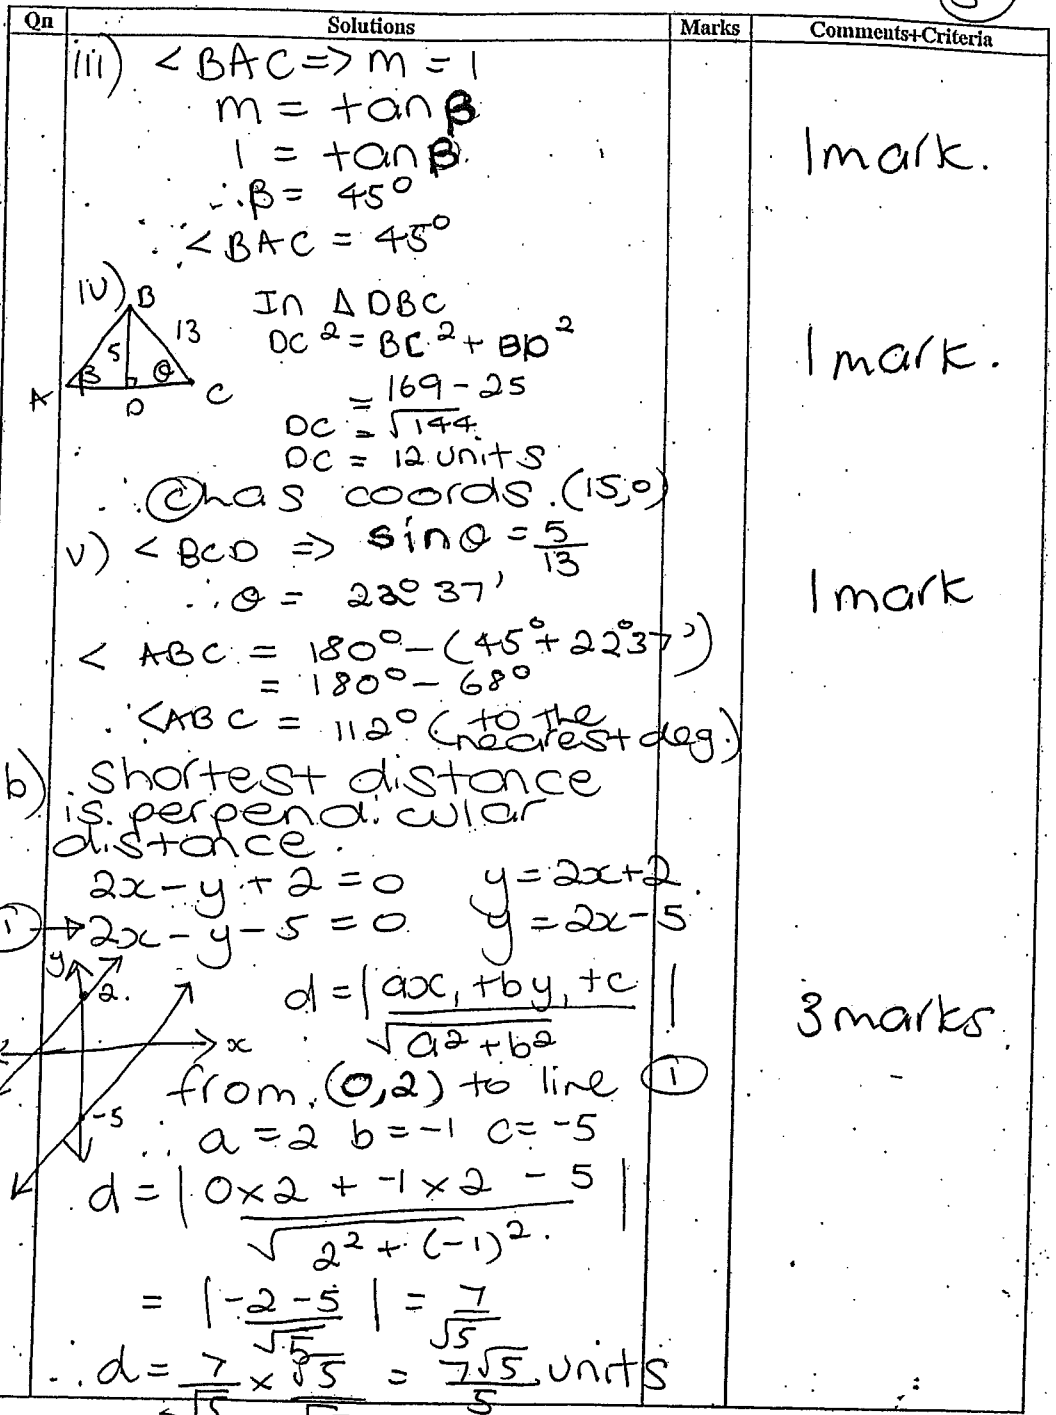 Qn Solutions Marks Comments+Criteria
iii) < BAC => m = 1
m = tan β
1 = tan β.
1 mark.
∴ β = 45°
∴ < BAC = 45°
iv) B
In Δ DBC
13
DC² = BC² + BD²
1 mark.
5
β θ
A D C
= 169 - 25
DC = √144
DC = 12 units
∴ C has coords. (15,0)
v) < BCD => sin θ = 5/13
1 mark
∴ θ = 22° 37'
< ABC = 180° - (45° + 22°37')
= 180° - 68°
∴ <ABC = 112° (to the nearest deg.)
b) Shortest distance
is perpendicular
distance.
2x - y + 2 = 0 y = 2x+2.
① → 2x - y - 5 = 0 y = 2x - 5
y
2.
d = | ax₁ + by₁ + c / √a² + b² |
3 marks.
x
from (0,2) to line ①
-5
∴ a = 2 b = -1 c = -5
d = | 0×2 + -1×2 - 5 / √2² + (-1)². |
= | -2 - 5 / √5 | = 7/√5
∴ d = 7/√5 × √5/√5 = 7√5/5 units